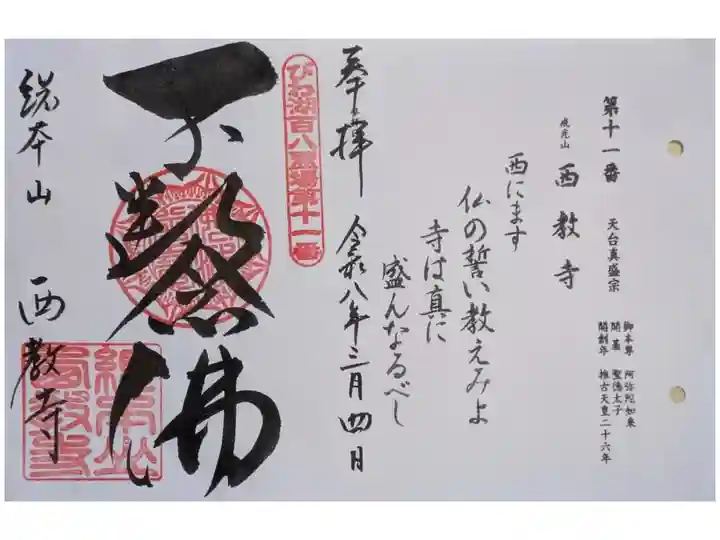 第十一番　天台真盛宗
戒光山　西教寺
御本尊　阿弥陀如来
開基　聖徳太子
開創年　推古天皇二十六年
西にます
仏の誓い教えみよ
寺は真に
盛んなるべし
奉拝　令和八年三月四日
びわ湖百八霊場第十一番
不断念佛
総本山　西教寺
総本山
西教寺